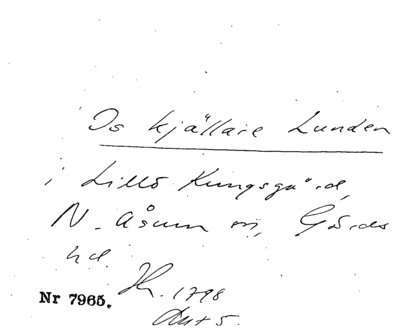 Is kjällare Lunden
i Lillö Kungsgård,
N. Åsum sn, Gärds
hd.
Nr 7965. 1798